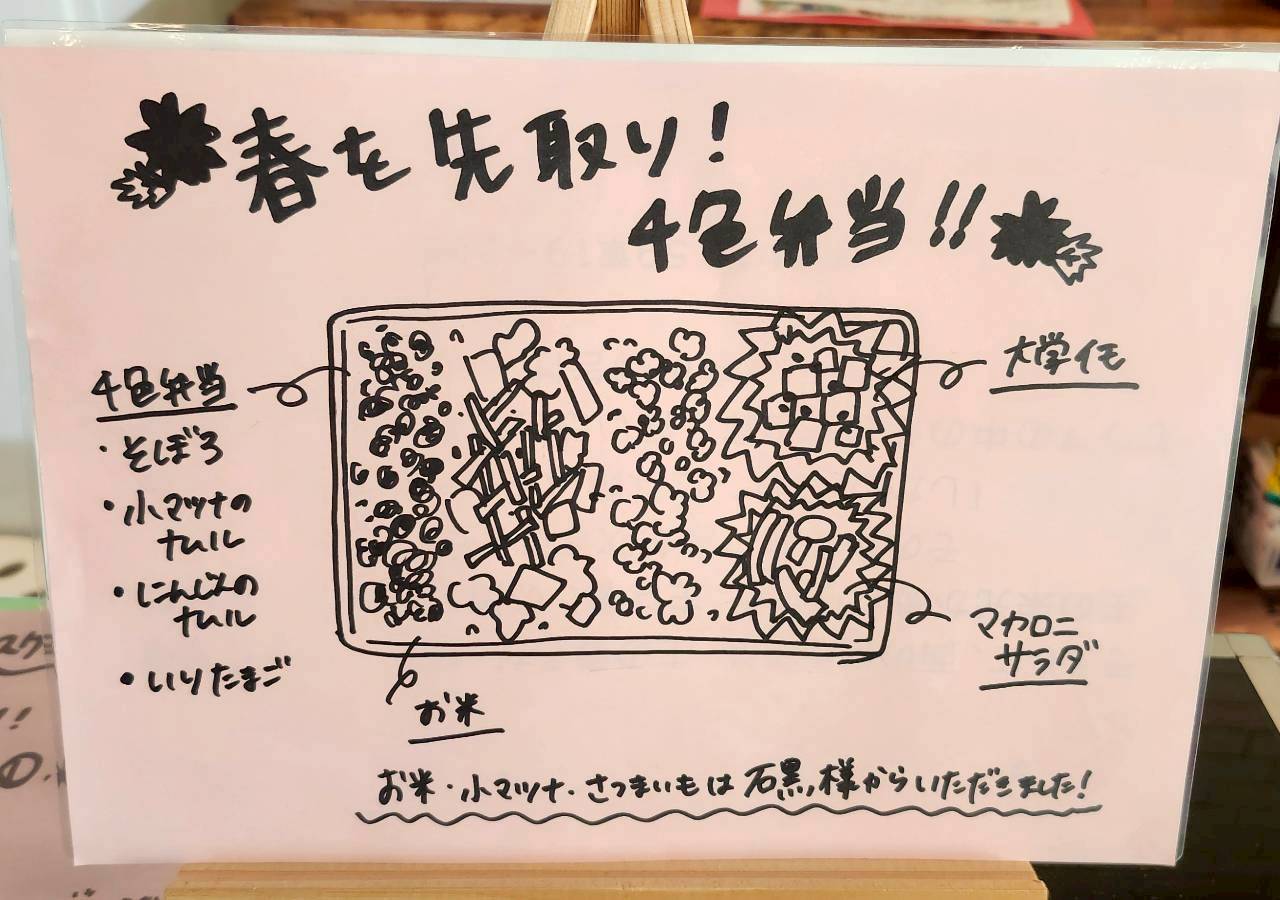 春を先取り!
4色弁当!!
4色弁当
・そぼろ
・小マツナの
ナムル
・にんじんの
ナムル
・いりたまご
お米
大学イモ
マカロニ
サラダ
お米・小マツナ・さつまいもは石黒様からいただきました!